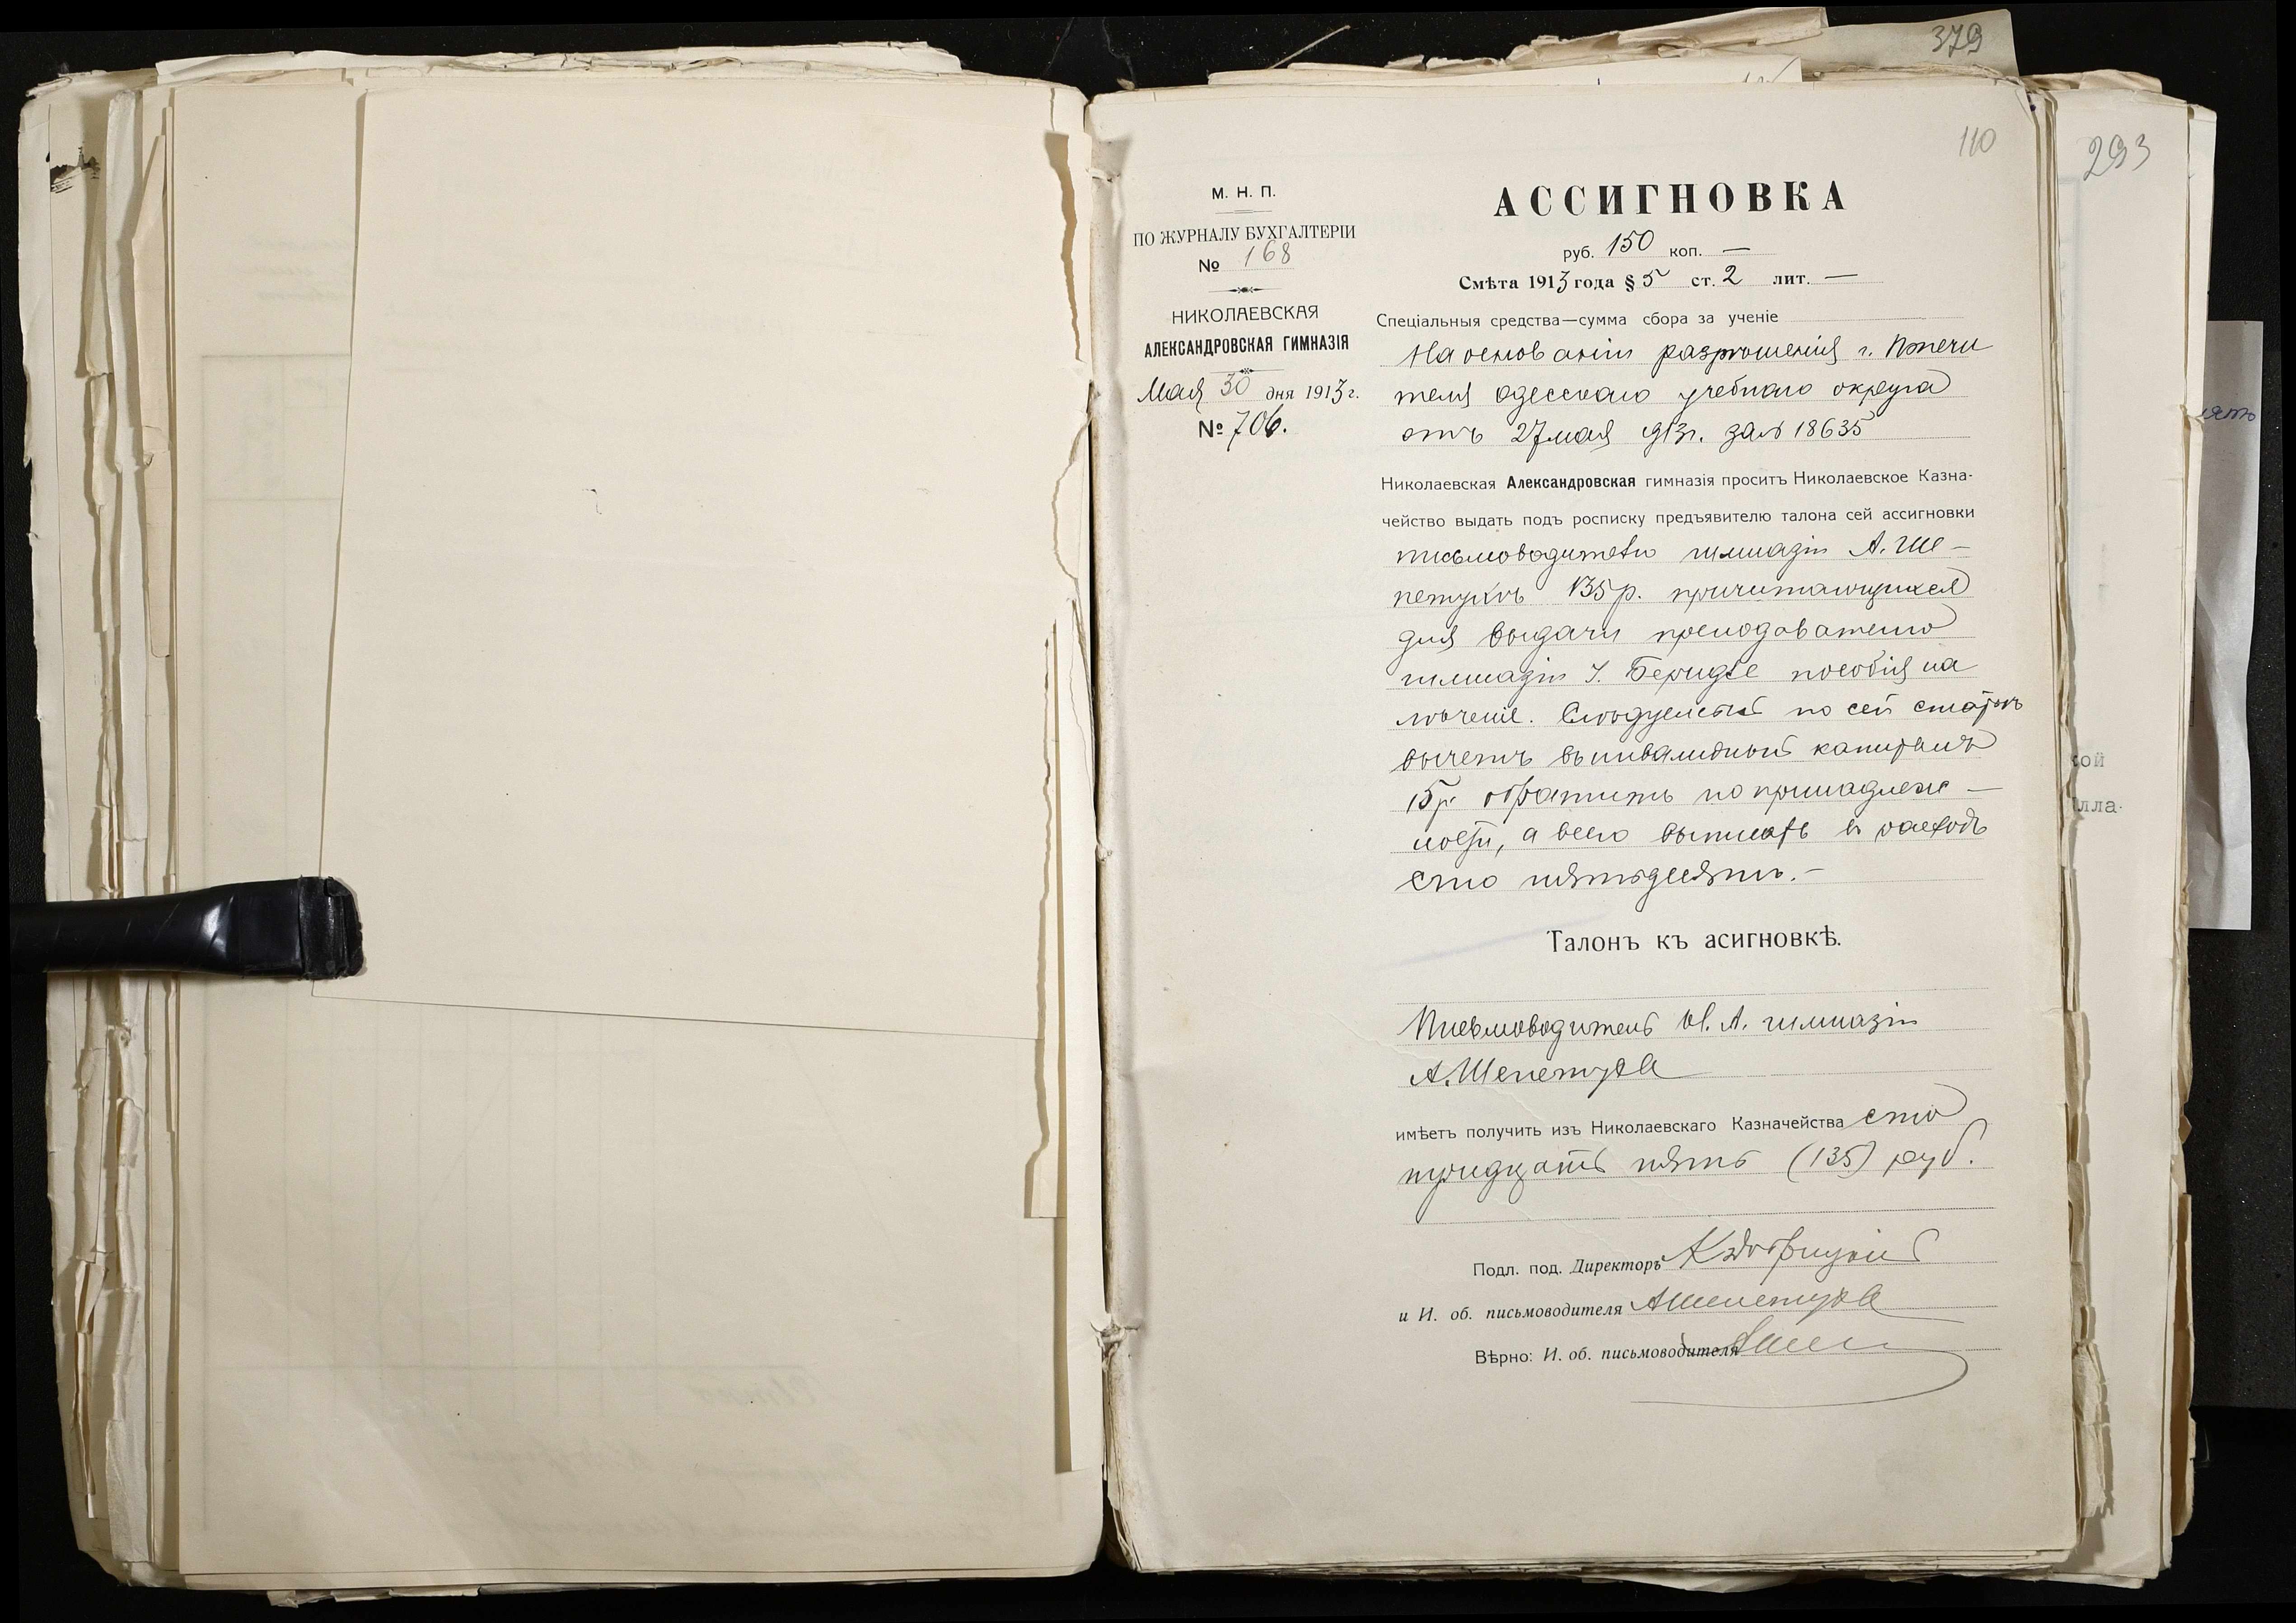 379
110
293
М. Н. П.
ПО ЖУРНАЛУ БУХГАЛТЕРІИ
№ 168
НИКОЛАЕВСКАЯ
АЛЕКСАНДРОВСКАЯ ГИМНАЗІЯ
Мая 30 дня 1913 г.
№ 706.
АССИГНОВКА
руб. 150 коп. —
Смѣта 1913 года § 5 ст. 2 лит. —
Спеціальныя средства—сумма сбора за ученіе
На основаніи разрѣшенія г. Попечи
теля Одесскаго учебнаго округа
отъ 27 мая 913г. за № 18635
Николаевская Александровская гимназія проситъ Николаевское Казна-
чейство выдать подъ росписку предъявителю талона сей ассигновки
письмоводителю гимназіи А. Ше-
петукѣ 135 р. причитающихся
для выдачи преподавателю
гимназіи І. Беридзе пособія на
лѣченіе. Слѣдуемый по сей статьѣ
вычетъ въ инвалидный капиталъ
15 р. обратить по принадлеж-
ности, а всего выписать въ расходъ
сто пятьдесятъ.-
Талонъ къ асигновкѣ.
Письмоводитель Н. А. гимназіи
А. Шепетука
имѣетъ получить изъ Николаевскаго Казначейства сто
тридцать пять (135) руб.
Подл. под. Директоръ
и И. об. письмоводителя АШепетука
Вѣрно: И. об. письмоводителя АШеп
ять
кой
лла-